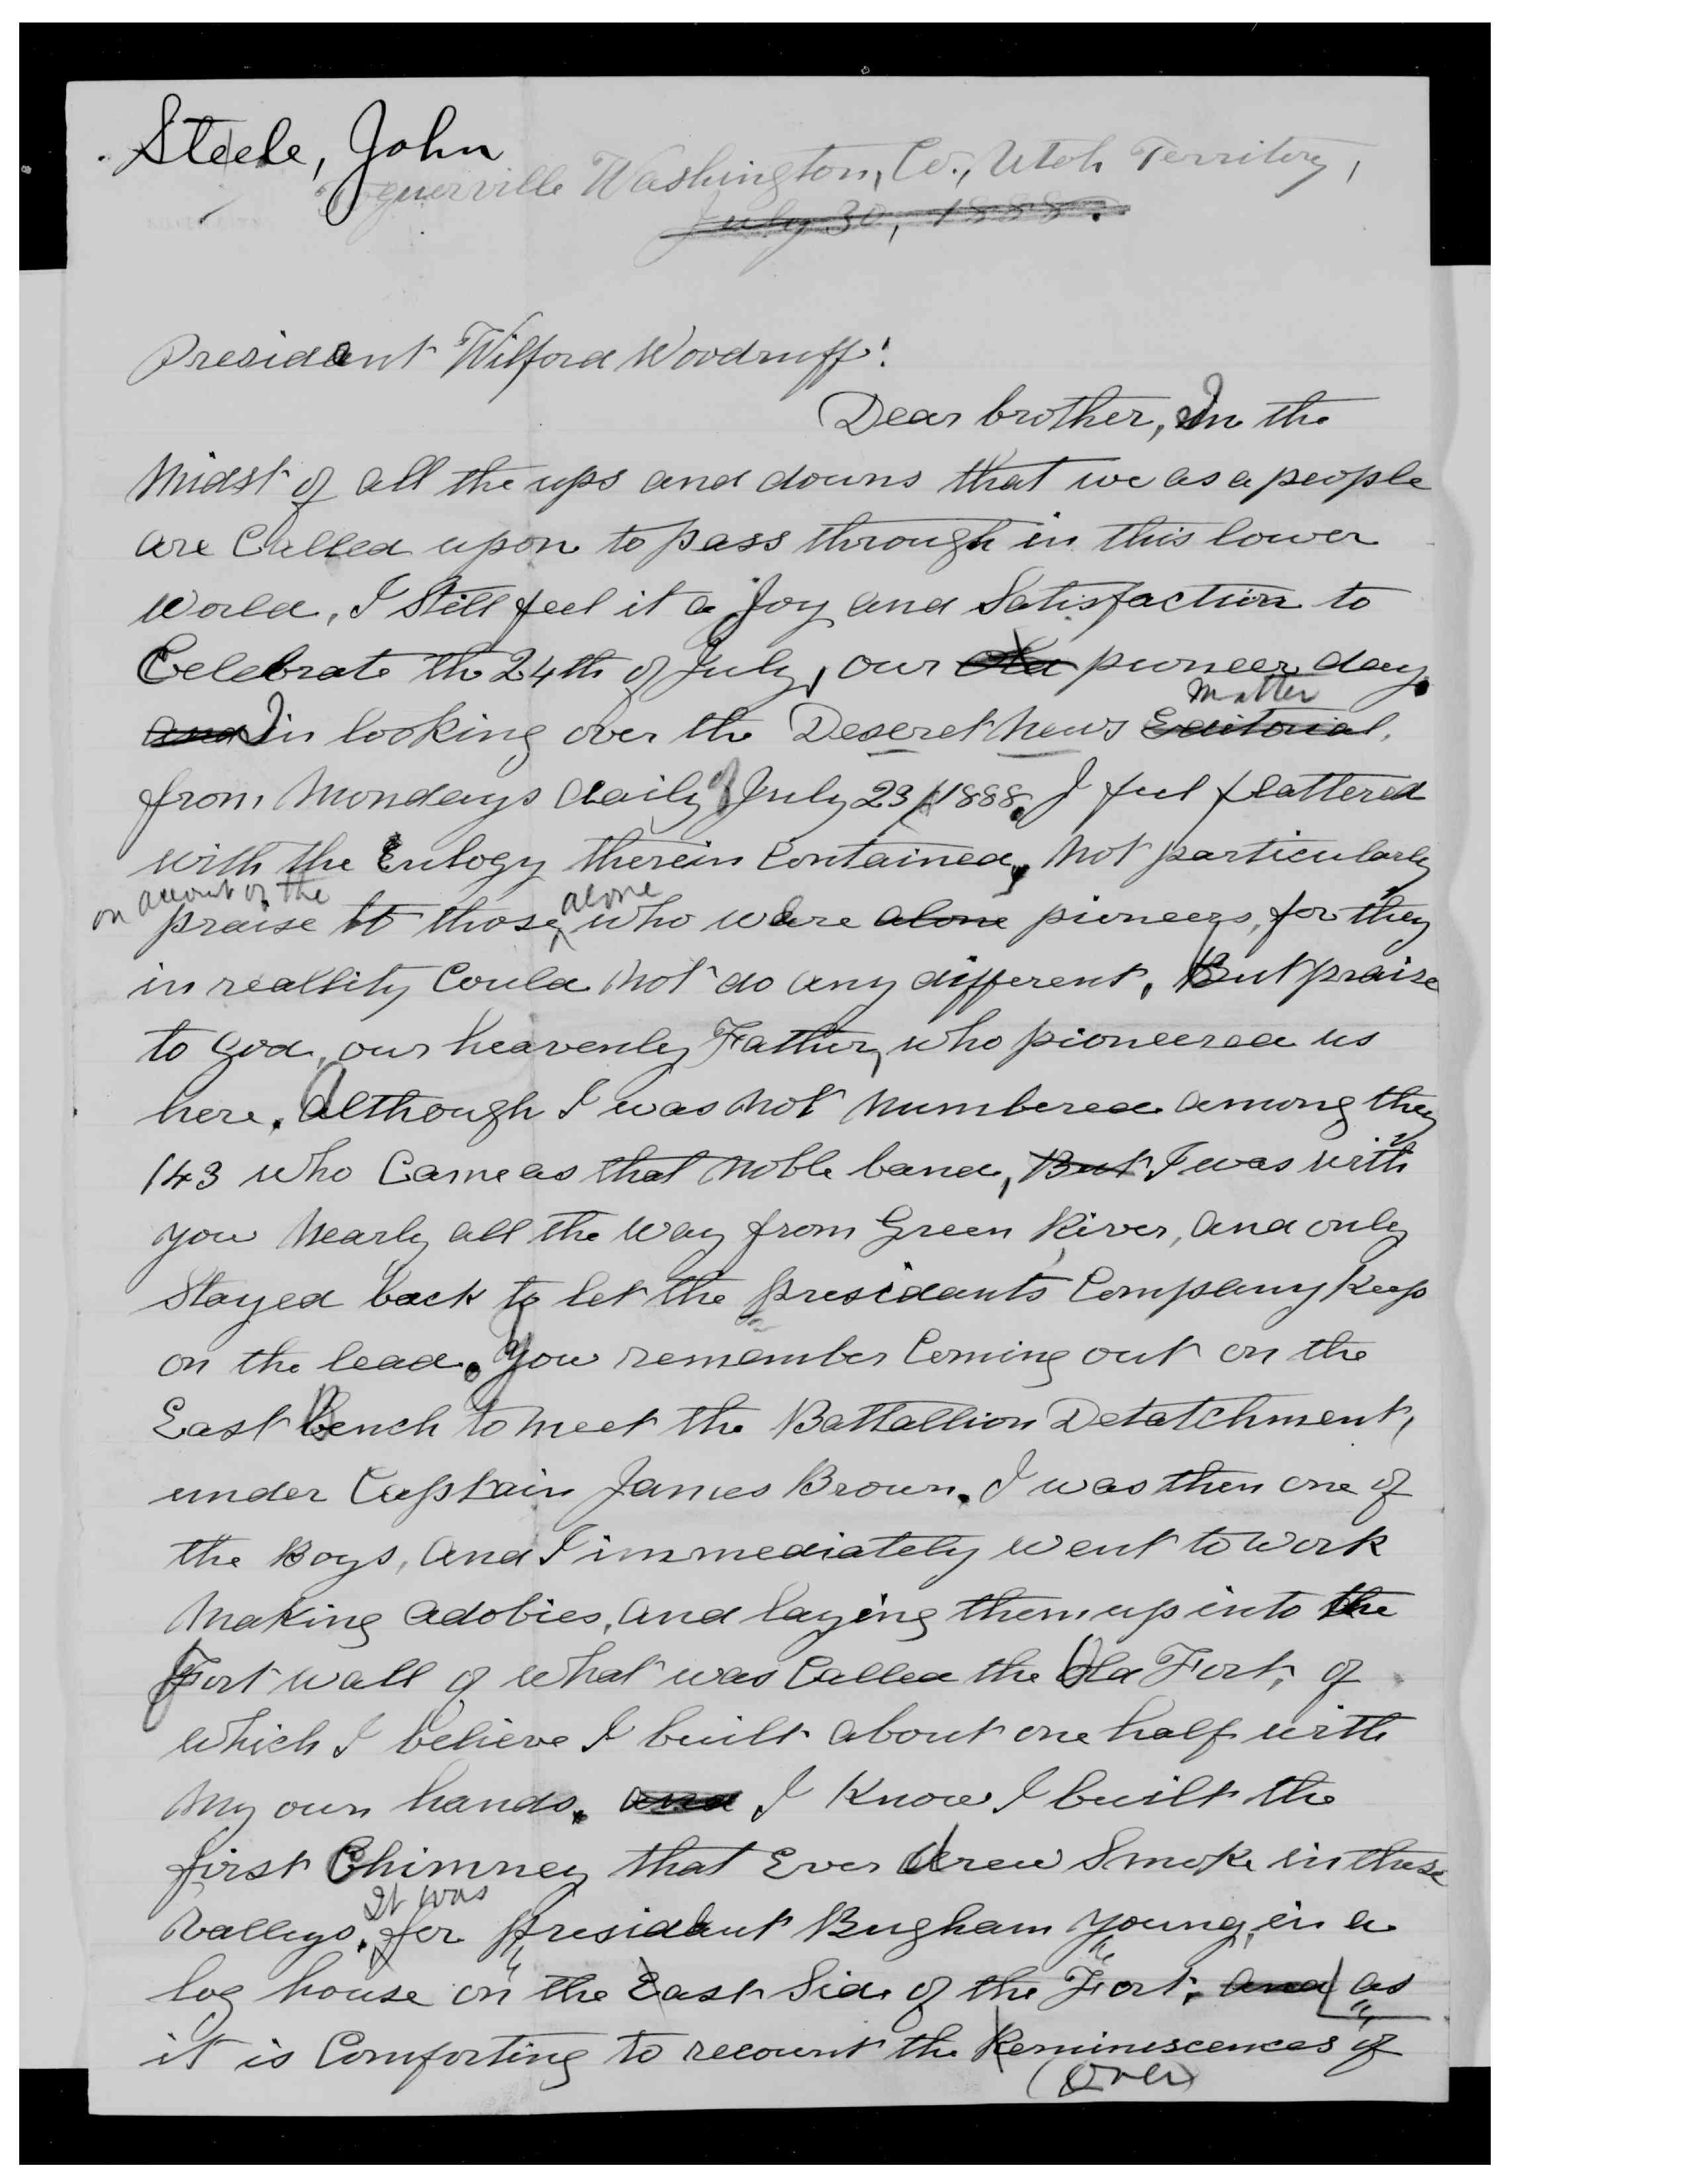 Steele, John
Toquerville Washington, Co., Utoh Territory,
July 30, 1888.
President Wilford Woodruff:
Dear brother, In the
Midst of all the ups and downs that we as a people
are Called upon to pass through in this lower
World, I Still feel it a Joy and Satisfaction to
Celebrate the 24th of July, our old pioneer day.
and In looking over the Deseret News Editorial,
matter
from Mondays daily of July 23/1888. I feel flattered
with the Eulogy therein Contained, Not particularly
on account of the
alone
praise to those who were alone pioneers, for they
in reallity Could Not do any different, But praise
to God, our heavenly Father, who pioneered us
here. Although I was Not Numbered among they
143 who Came as that Noble band, But I was with
you Nearly all the way from Green River, and only
Stayed back to let the presidants Company Keep
on the lead. You remember Coming out on the
East Bench to meet the Battallion Detatchment,
under Captain James Brown. I was then one of
the Boys, and I immediately went to Work
Making adobies, and laying them up into the
Fort wall of what was Called the Old Fort, of
which I believe I built about one half with
My own hands. and I Know I built the
first Chimney that Ever drew Smoke in these
It was
Valleys. for president Brigham Young, in a
log house on the East Side of the Fort. and as
it is Comforting to recount the Reminiscences of
(Over)